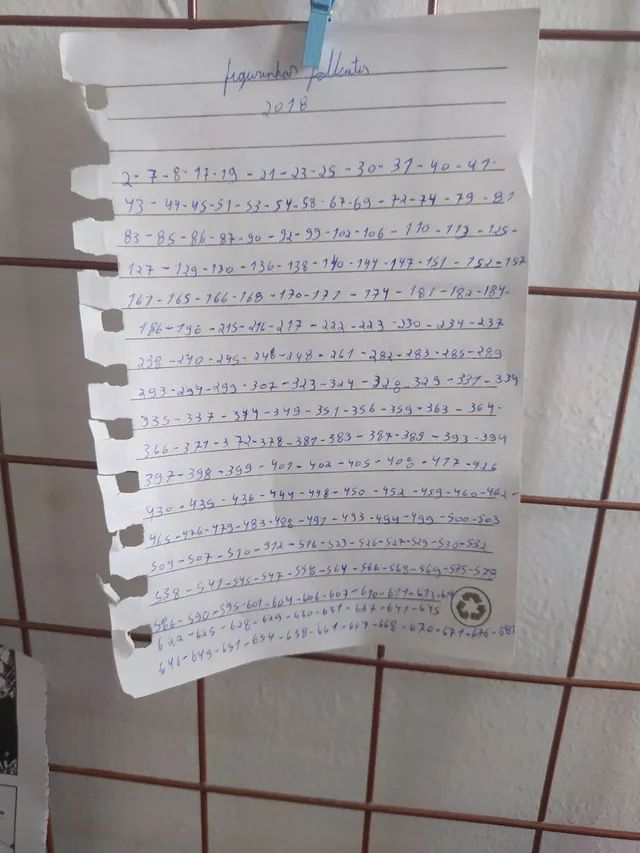 figurinhas faltantes
2018
2 - 7 - 8 - 17 - 19 - 21 - 23 - 25 - 30 - 31 - 40 - 41 -
43 - 44 - 45 - 51 - 53 - 54 - 58 - 67 - 69 - 72 - 74 - 79 - 81
83 - 85 - 86 - 87 - 90 - 92 - 99 - 102 - 106 - 110 - 113 - 125 -
127 - 129 - 130 - 136 - 138 - 140 - 144 - 147 - 151 - 152 - 157
161 - 165 - 166 - 168 - 170 - 171 - 174 - 181 - 182 - 184 -
186 - 196 - 215 - 216 - 217 - 222 - 223 - 230 - 234 - 237
238 - 240 - 245 - 246 - 248 - 261 - 282 - 283 - 285 - 289
293 - 294 - 299 - 307 - 323 - 324 - 328 - 329 - 331 - 334
335 - 337 - 344 - 349 - 351 - 356 - 359 - 363 - 364 -
366 - 371 - 372 - 378 - 381 - 383 - 387 - 389 - 393 - 394
397 - 398 - 399 - 401 - 402 - 405 - 408 - 417 - 426
430 - 435 - 436 - 444 - 448 - 450 - 452 - 459 - 460 - 462 -
465 - 476 - 479 - 483 - 488 - 491 - 493 - 494 - 499 - 500 - 503
504 - 507 - 510 - 512 - 516 - 523 - 526 - 527 - 529 - 530 - 532
538 - 541 - 545 - 547 - 558 - 564 - 566 - 568 - 569 - 575 - 578
586 - 590 - 595 - 601 - 604 - 606 - 607 - 610 - 611 - 613
622 - 625 - 628 - 629 - 630 - 631 - 637 - 641 - 645
646 - 649 - 651 - 654 - 658 - 661 - 667 - 668 - 670 - 671 - 676 - 681